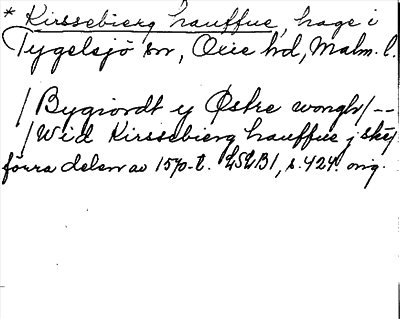 * Kirssebierg hauffue, hage i
Tygelsjö sn, Oxie hd, Malm. l.
/ Bygiordt y Østre wongh / --
/ Wid Kirssebierg hauffue j skel /
förra delen av 1570-t. LSLB1, s. 424. orig.